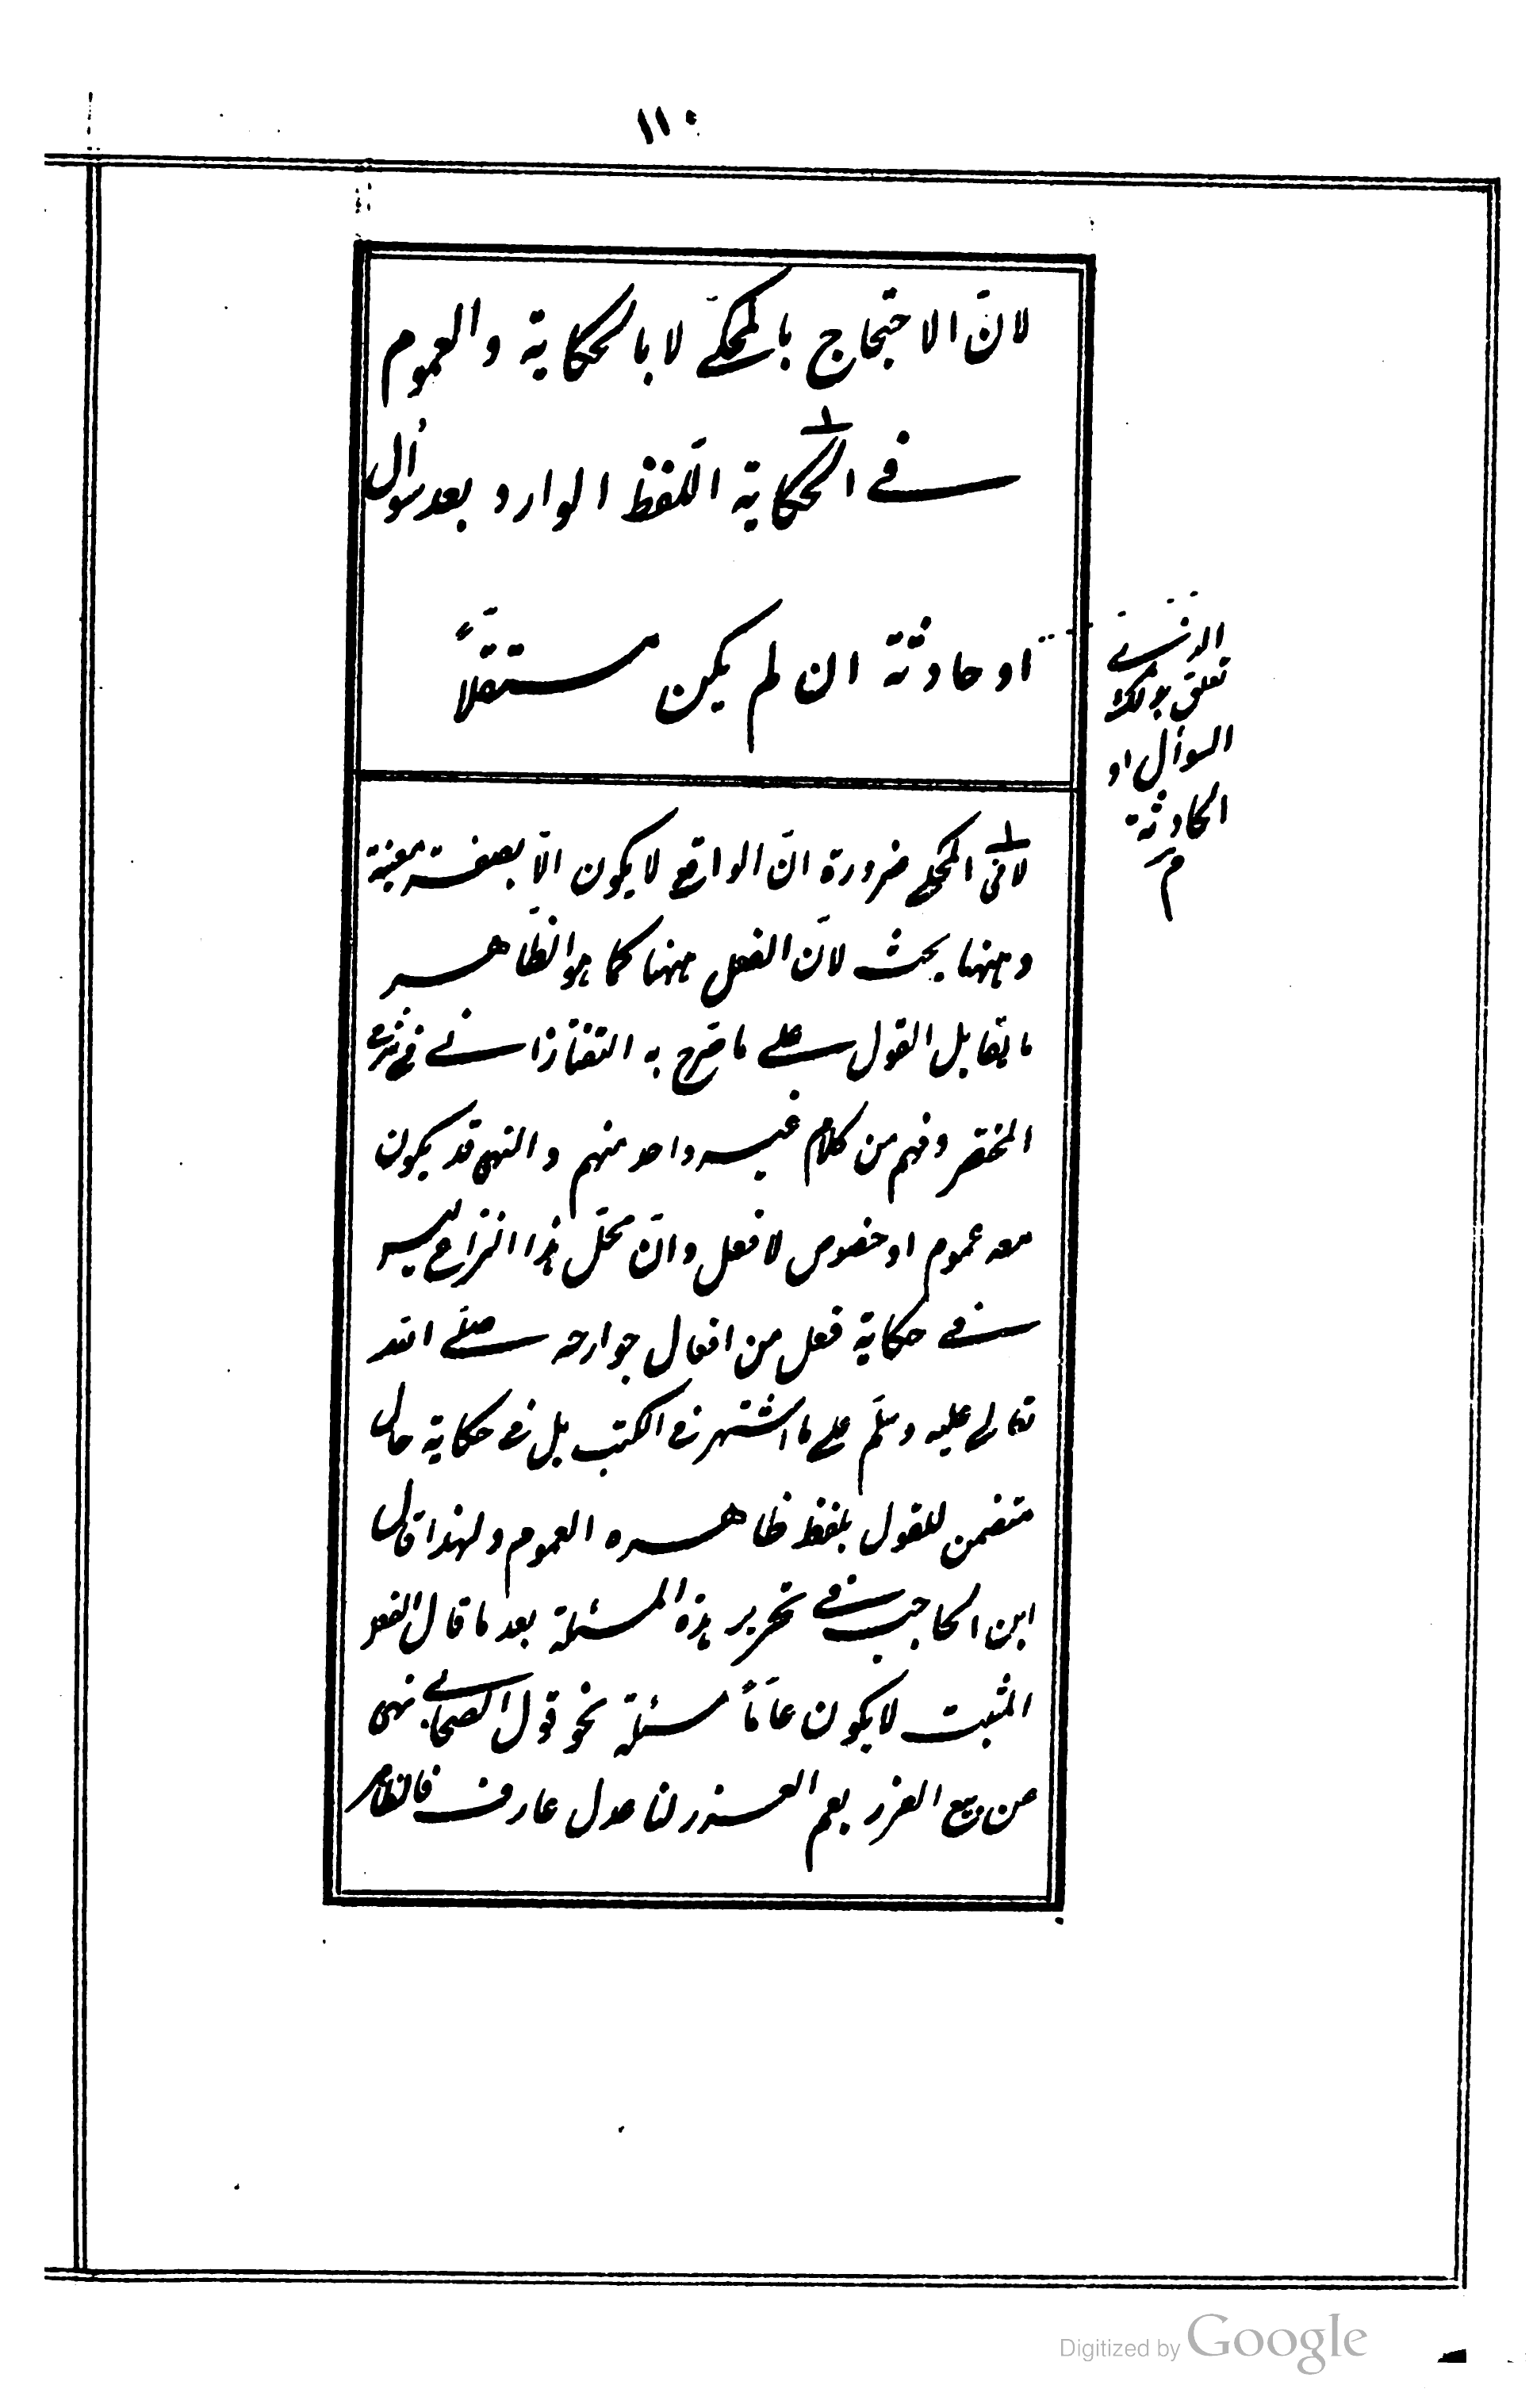 ١١٠
لانّ الاحتجاج بالمحكى لا بالحكاية والعموم
فى الحكاية اللفظ الوارد بعد سؤال
او حادثة ان لم يكن مستقلاً
الذى
تعلق بذلك
السوأل او
الحادثة
م
لا فى المحكى ضرورة انّ الواقع لا يكون الّا بصفة معينة
وههنا بحث لانّ الفعل ههنا كما هو الظاهر
ما يقابل القول على ما صرح به التفتازانى فى شرح
المختصر وفهم من كلام غير واحد منهم والنهى قد يكون
معه عموم او خصوص لا فعل وانّ محلّ هذا النزاع ليس
فى حكاية فعل من افعال جوارحه صلّى الله
تعالى عليه وسلّم على ما اشتهر فى الكتب بل فى حكاية حال
متضمن للقول بلفظ ظاهره العموم ولهذا قال
ابن الحاجب فى تحرير هذه المسئلة بعد ما قال الفعل
المثبت لا يكون عامّاً مسئلة نحو قول الصحابى نهى
عن بيع الغرر يعم الغرر لنا عدل عارف فالظاهر
Digitized by Google